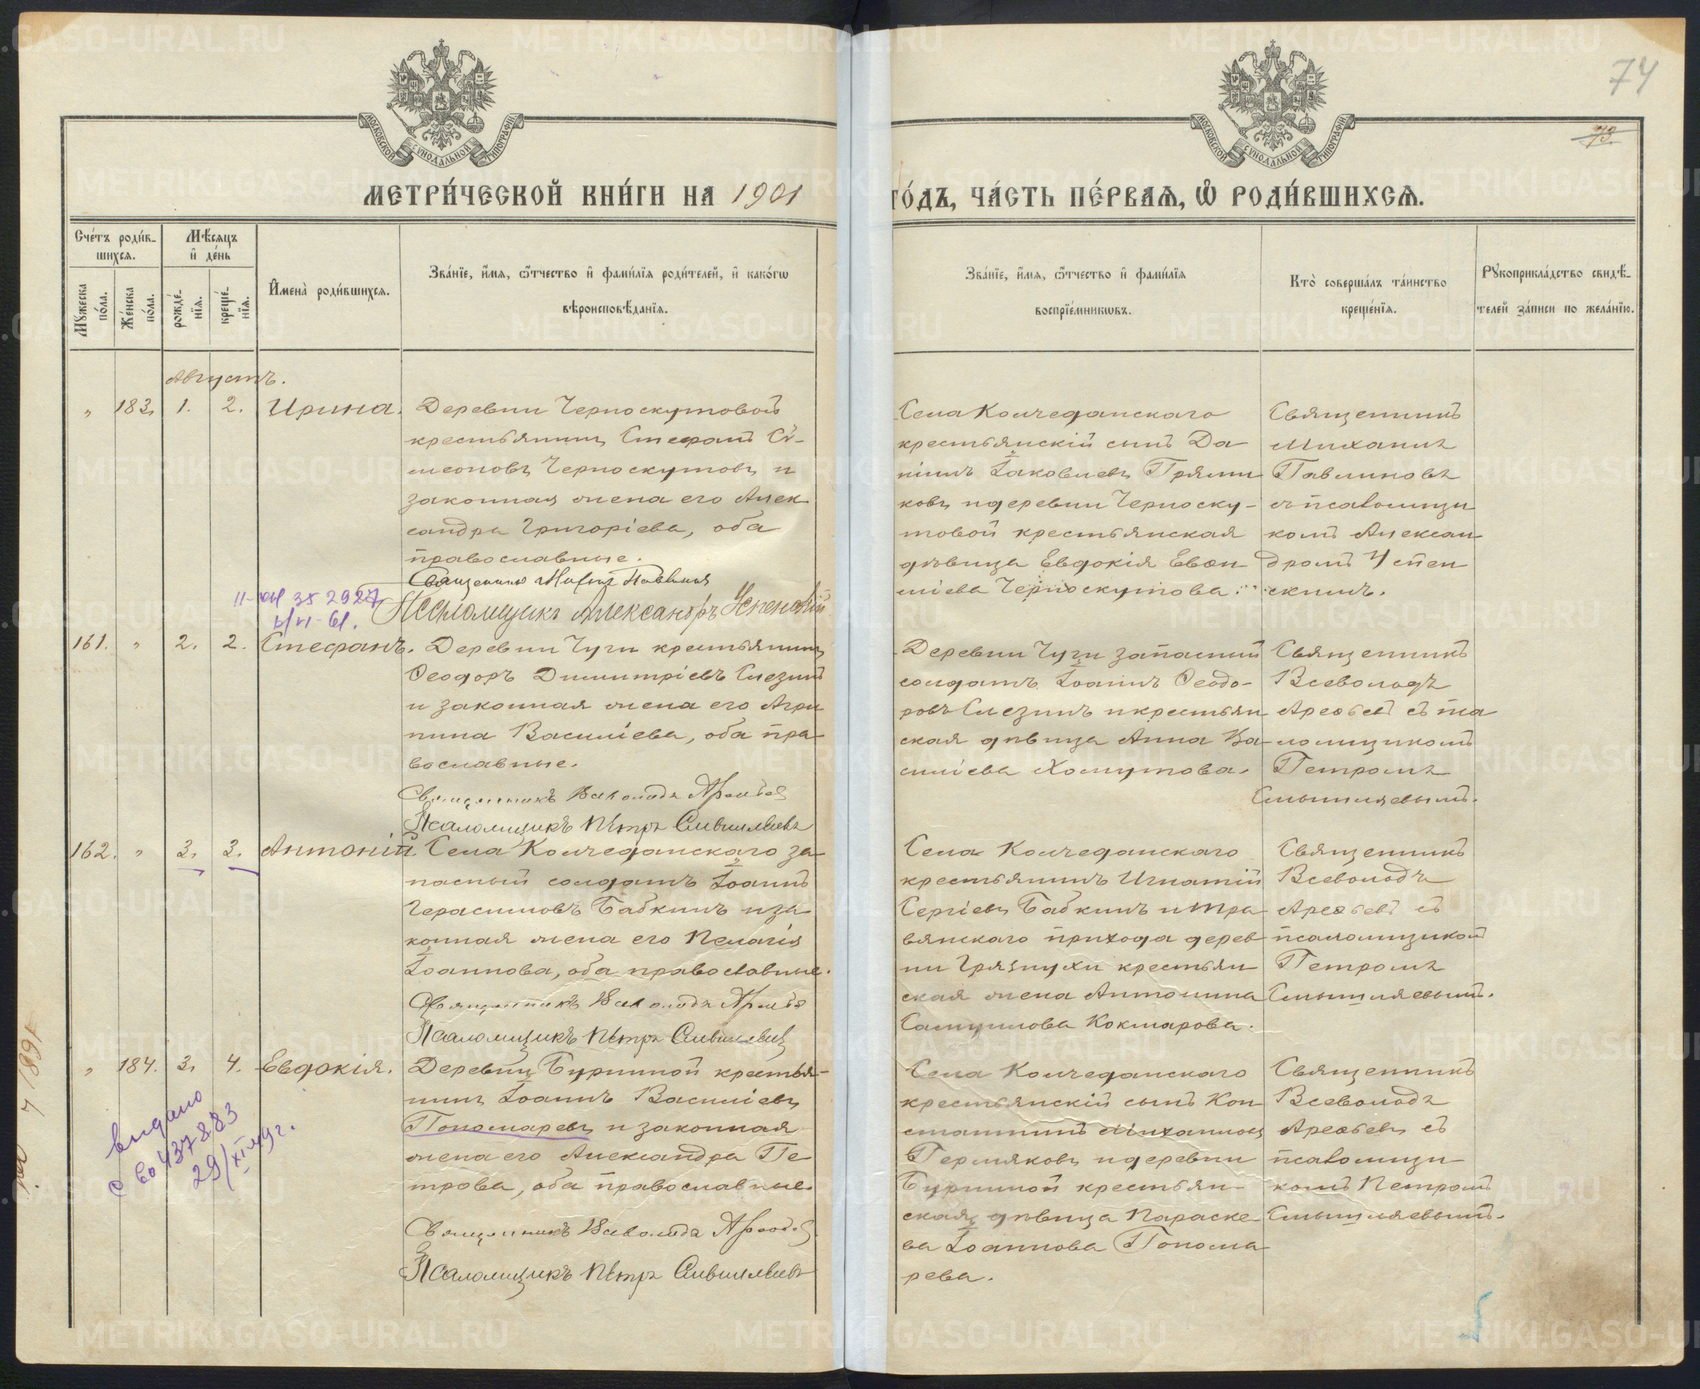 74
73.
МЕТРИ́ЧЕСКОЙ КНИ́ГИ НА 1901 ГО́ДЪ, ЧА́СТЬ ПЕ́РВАѦ, Ѿ РОДИ́ВШИХСѦ.
Сче́тъ роди́в-
шихся.
Мꙋжеска по́ла.
Же́нска по́ла.
Мѣ́сяцъ
и҆ де́нь
рожде́-
нїя.
креще́-
нїя.
И҆мена̀ роди́вшихся.
Зва́нїе, и҆́мя, ѻ҆́тчество и҆ фами́лїя роди́телей, и҆ како́гѡ
вѣроисповѣ́данїя.
Зва́нїе, и҆́мя, ѻ҆́тчество и҆ фами́лїя
воспрїе́мникѡвъ.
Кто̀ соверша́лъ та́инство
креще́нїя.
Рꙋкоприкла́дство свидѣ́-
телей за́писи по жела́нїю.
Августъ.
" 183. 1. 2. Ирина.
Деревни Черноскутовой
крестьянинъ Стефанъ Си-
меоновъ Черноскутовъ и
законная жена его Алек
сандра Григоріева, оба
православные.
Священникъ Михаилъ Павлиновъ
Псаломщикъ Александръ Успенскій
Села Колчеданскаго
крестьянскій сынъ Да-
ніилъ Іаковлевъ Прями
ковъ и деревни Черноску-
товой крестьянская
дѣвица Евдокія Еван
иліева Черноскутова.
Священникъ
Михаилъ
Павлиновъ
съ псаломщи
комъ Алексан-
дромъ Успен
скимъ.
161. " 2. 2. Стефанъ.
Деревни Чуги крестьянинъ
Ѳеодоръ Димитріевъ Слезинъ
и законная жена его Агри
пина Василіева, оба пра
вославные.
Священникъ Всеволодъ Арефьевъ
Псаломщикъ Петръ Смышляевъ
Деревни Чуги запасный
солдатъ Іоаннъ Ѳеодо-
ровъ Слезинъ и крестьян
ская дѣвица Анна Ва-
силіева Хомутова.
Священникъ
Всеволодъ
Арефьевъ съ пса
ломщикомъ
Петромъ
Смышляевымъ.
162. " 3. 3. Антоній
Села Колчеданскаго за
пасный солдатъ Іоаннъ
Герасимовъ Бабкинъ и за
конная жена его Пелагія
Іоаннова, оба православные.
Священникъ Всеволодъ Арефьевъ
Псаломщикъ Петръ Смышляевъ
Села Колчеданскаго
крестьянинъ Игнатій
Сергіевъ Бабкинъ и Тра
вянскаго прихода дерев
ни Грязнухи крестьян
ская жена Антонина
Самуилова Кокшарова.
Священникъ
Всеволодъ
Арефьевъ съ
псаломщикомъ
Петромъ
Смышляевымъ.
" 184. 3. 4. Евдокія.
Деревни Буриной крестья-
нинъ Іоаннъ Василіевъ
Пономаревъ и законная
жена его Александра Пе
трова, оба православные.
Священникъ Всеволодъ Арефьевъ
Псаломщикъ Петръ Смышляевъ
выдано
с во 437883
29/XI 49 г.
Села Колчеданскаго
крестьянскій сынъ Кон
стантинъ Михаиловъ
Пермяковъ и деревни
Буриной крестьян
ская дѣвица Параске
ва Іоаннова Понома
рева.
Священникъ
Всеволодъ
Арефьевъ съ
псаломщи
комъ Петромъ
Смышляевымъ.
METRIKI.GASO-URAL.RU